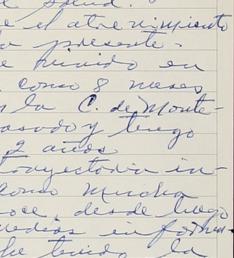 salud.
el atrevimiento
presente.
e vivido en
como 8 meses
la C. de Monte-
asado y tengo
2 años
trayectoria in-
como mucha
oce, desde luego
medios en forma-
he tenido la